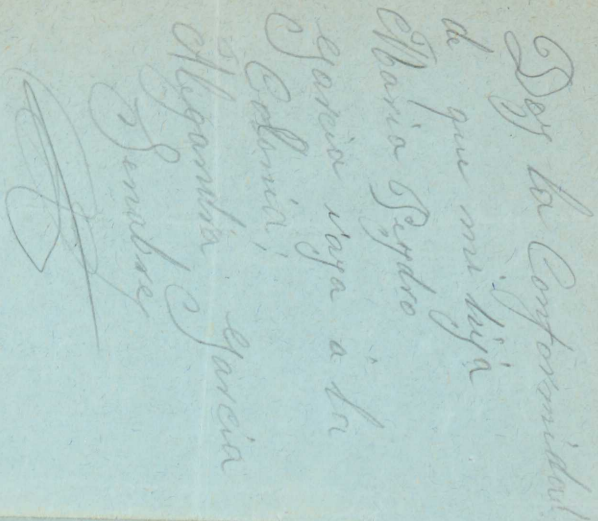 Doy la Conformidad
de que mi hija
Maria Peydro
Garcia vaya a la
Colonia,
Alejandra Garcia
Senabre